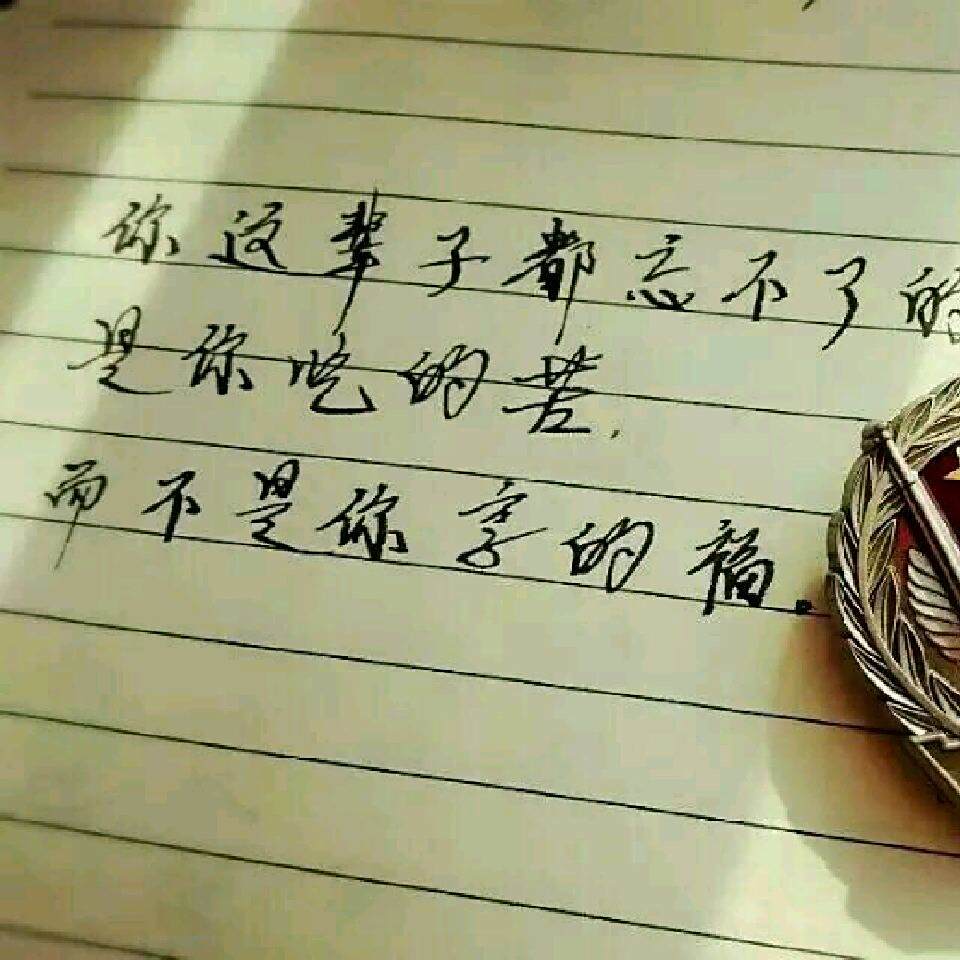 你这辈子都忘不了的
是你吃的苦,
而不是你享的福。